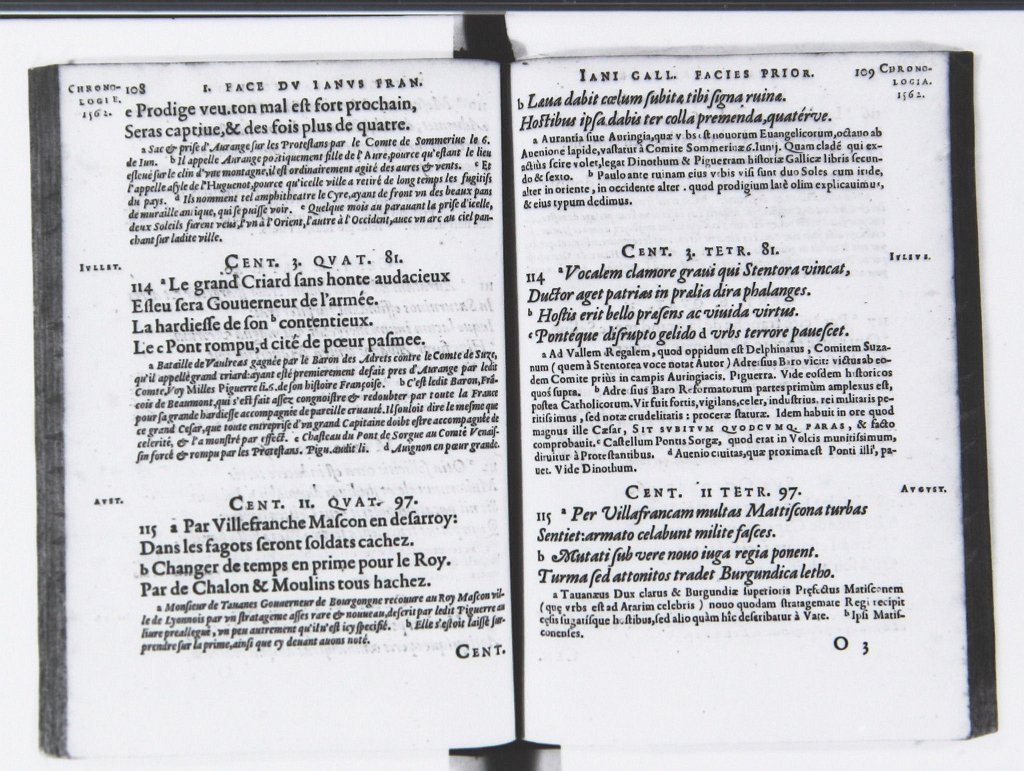 CHRONO-
LOGIE.
1562.
108 I. FACE DV IANVS FRAN.
e Prodige veu, ton mal est fort prochain,
Seras captiue, & des fois plus de quatre.
a Sac & prise d'Aurange sur les Protestans par le Comte de Sommeriue le 6.
de Iun. b Il appelle Aurange poëtiquement fille de l'Aure, pource qu'estant le lieu
esleué sur le clin d'vne montagne, il est ordinairement agité des aures & vents. c Et
l'appelle asyle de l'Huguenot, pource qu'icelle ville a retiré de long temps les fugitifs
du pays. d Ils nomment tel amphitheatre le Cyre, ayant de front vn des beaux pans
de muraille antique, qui se puisse voir. e Quelque mois au parauant la prise d'icelle,
deux Soleils furent veus, l'vn à l'Orient, l'autre à l'Occident, auec vn arc au ciel pan-
chant sur ladite ville.
IVLLET.
CENT. 3. QVAT. 81.
114 a Le grand Criard sans honte audacieux
Esleu sera Gouuerneur de l'armée.
La hardiesse de son b contentieux.
Le c Pont rompu, d cité de pœur pasmee.
a Bataille de Vaulreas gagnée par le Baron des Adrets contre le Comte de Suze,
qu'il appelle grand criard: ayant esté premierement defait pres d'Aurange par ledit
Comte, Voy Milles Piguerre li. 6. de son histoire Françoise. b C'est ledit Baron, Frã-
cois de Beaumont, qui s'est fait assez congnoistre & redoubter par toute la France
pour sa grande hardiesse accompagnée de pareille cruauté. Il souloit dire le mesme que
ce grand Cesar, que toute entreprise d'vn grand Capitaine doibt estre accompagnée de
celerité, & l'a monstré par effect. c Chasteau du Pont de Sorgue au Comté Venais-
sin forcé & rompu par les Protestans. Pigu. audit li. d Auignon en pœur grande.
AVST.
CENT. 11. QVAT. 97.
115 a Par Villefranche Mascon en desarroy:
Dans les fagots seront soldats cachez.
b Changer de temps en prime pour le Roy.
Par de Chalon & Moulins tous hachez.
a Monsieur de Tauanes Gouuerneur de Bourgongne recouure au Roy Mascon vil-
le de Lyonnois par vn stratageme asses rare & nouueau, descrit par ledit Piguerre au
liure preallegué, vn peu autrement qu'il n'est icy specifié. b Elle s'estoit laissé sur-
prendre sur la prime, ainsi que cy deuant auons noté.
CENT.
IANI GALL. FACIES PRIOR. 109
CHRONO-
LOGIA.
1562.
b Laua dabit cœlum subita tibi signa ruinæ.
Hostibus ipsa dabis ter colla premenda, quatérve.
a Aurantia siue Auringia, quæ vrbs est nouorum Euangelicorum, octauo ab
Auenione lapide, vastatur à Comite Sommeriuæ 6. Iunij. Quam cladé qui ex-
actiùs scire volet, legat Dinothum & Pigueram historiæ Gallicæ libris secun-
do & sexto. b Paulo ante ruinam eius vrbis visi sunt duo Soles cum iride,
alter in oriente, in occidente alter. quod prodigium latè olim explicauimus,
& eius typum dedimus.
CENT. 3. TETR. 81.
IVLIVS.
114 a Vocalem clamore graui qui Stentora vincat,
Ductor aget patrias in prælia dira phalanges.
b Hostis erit bello præsens ac viuida virtus.
c Pontéque disrupto gelido d vrbs terrore pauescet.
a Ad Vallem Regalem, quod oppidum est Delphinatus, Comitem Suza-
num (quem à Stentorea voce notat Autor) Adressius Baro vicit: victus ab eo-
dem Comite priùs in campis Auringiacis. Piguerra. Vide eosdem historicos
quos supra. b Adressius Baro Reformatorum partes primùm amplexus est,
postea Catholicorum. Vir fuit fortis, vigilans, celer, industrius. rei militaris pe-
ritissimus, sed notæ crudelitatis: proceræ staturæ. Idem habuit in ore quod
magnus ille Cæsar, SIT SVBITVM QVODCVMQ. PARAS, & facto
comprobauit. c Castellum Pontus Sorgæ, quod erat in Volcis munitissimum,
diruitur à Protestantibus. d Auenio ciuitas, quæ proxima est Ponti illi, pa-
uet. Vide Dinothum.
CENT. 11 TETR. 97.
AVGVST.
115 a Per Villafrancam multas Mattiscona turbas
Sentiet: armato celabunt milite fasces.
b Mutati sub vere nouo iuga regia ponent.
Turma sed attonitos tradet Burgundica letho.
a Tauanæus Dux clarus & Burgundiæ superioris Præfectus Matisconem
(que vrbs est ad Ararim celebris) nouo quodam stratagemate Regi recipit
cæsis fugatisque hostibus, sed alio quàm hîc describatur à Vate. b Ipsi Matis-
conenses.
O 3